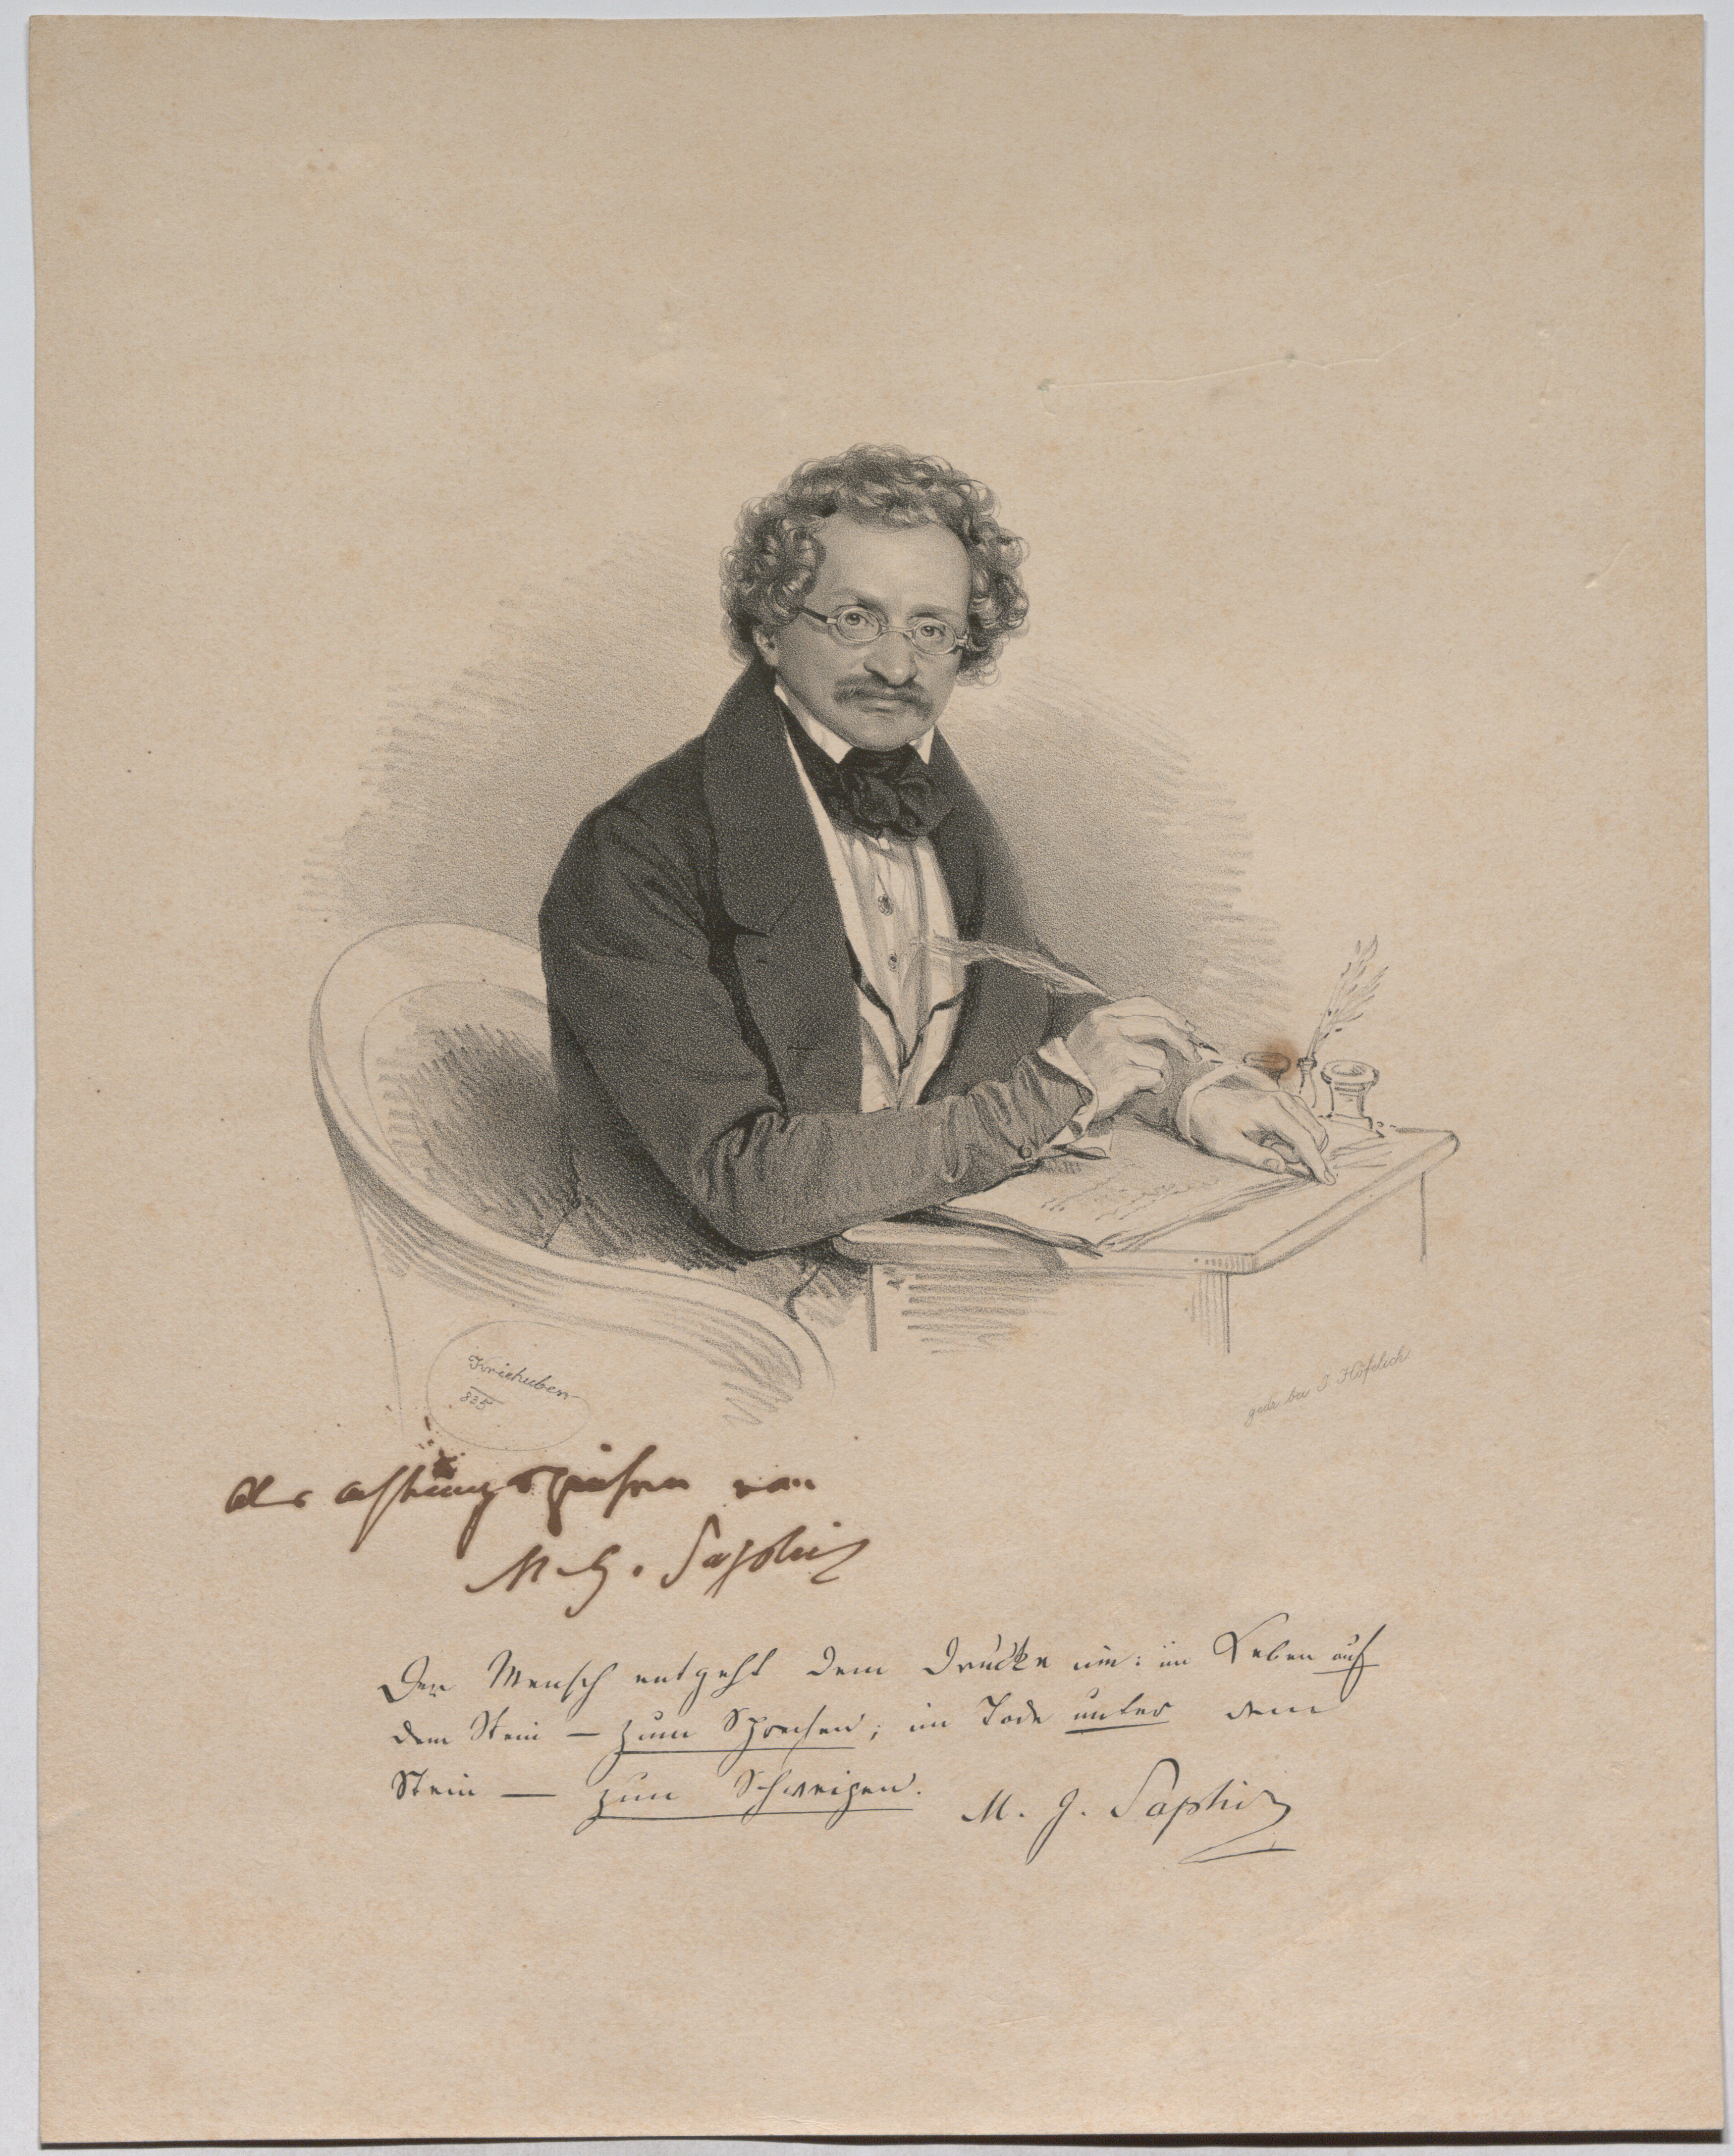 Kriehuber
835
gedr. bei J. Höfelich
Als Achtungszeichen von
M. G. Saphir
Der Mensch entgeht dem Drucke nie: im Leben auf
dem Stein – zum Sprechen; im Tode unter dem
Stein – zum Schweigen.
M. G. Saphir